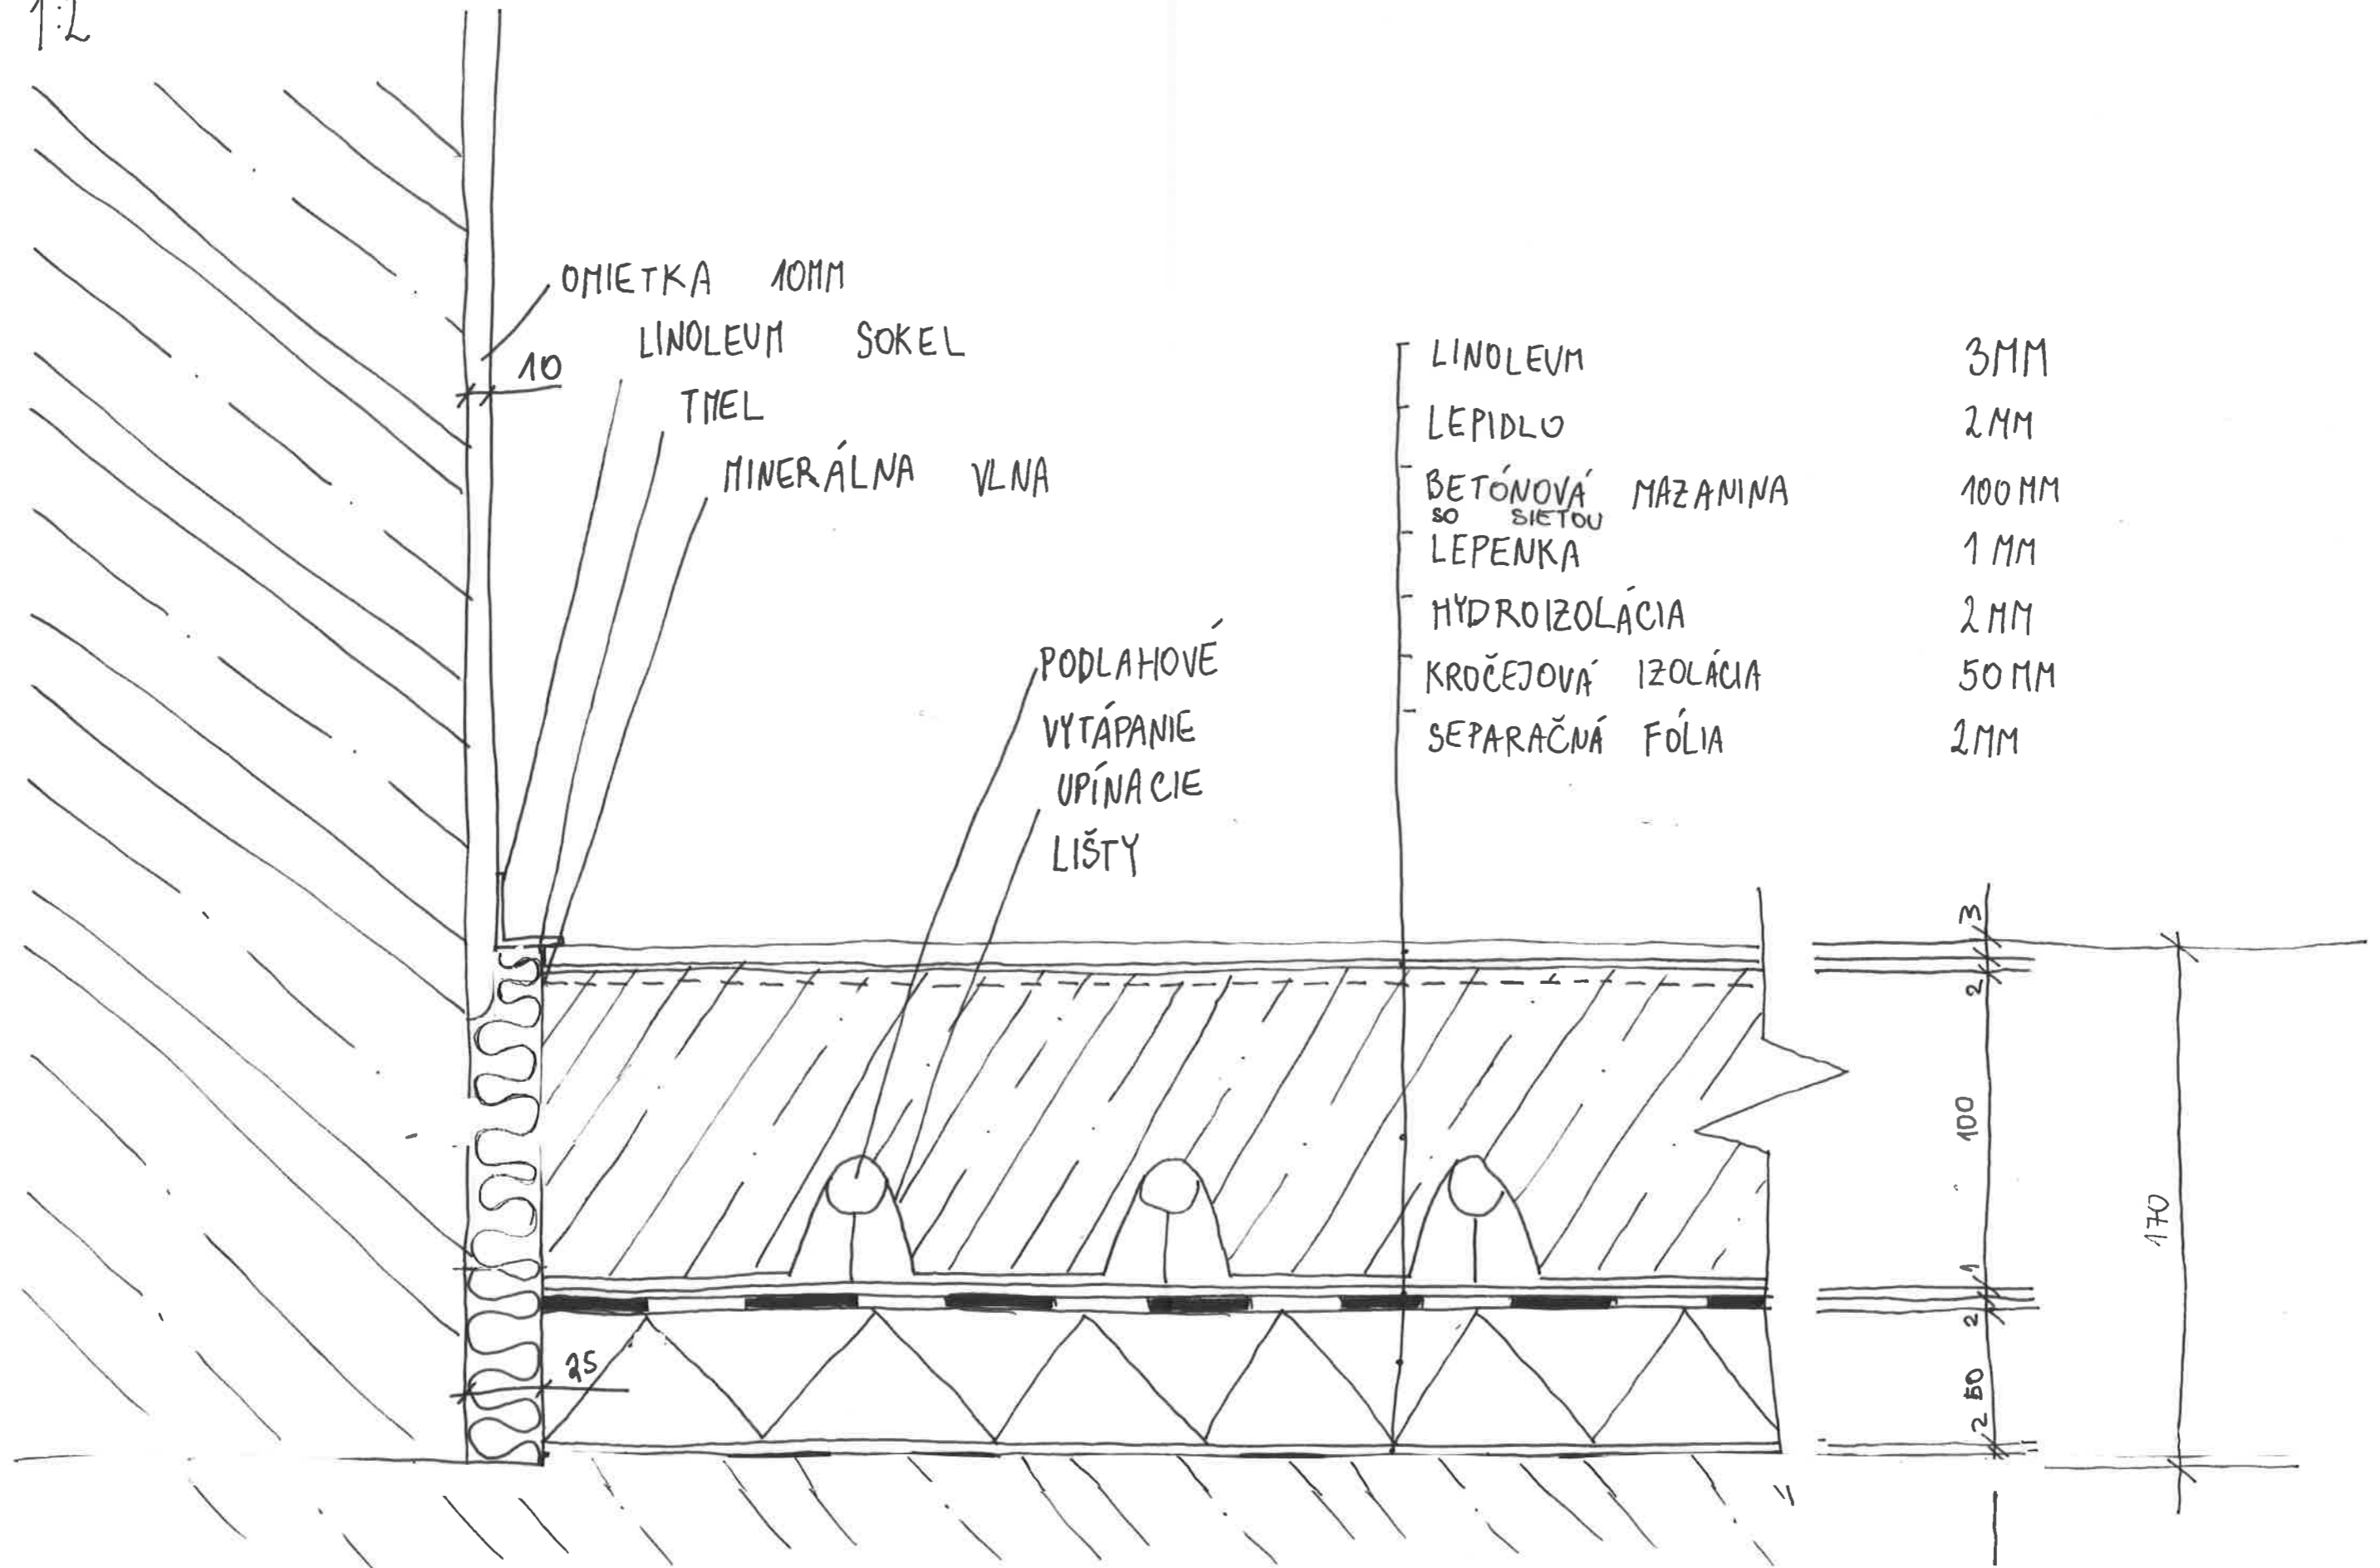 1:2
OMIETKA 10MM
10
LINOLEUM SOKEL
TMEL
MINERÁLNA VLNA
PODLAHOVÉ
VYTÁPANIE
UPÍNACIE
LIŠTY
LINOLEUM 3MM
LEPIDLO 2MM
BETÓNOVÁ MAZANINA 100MM
SO SIETOU
LEPENKA 1MM
HYDROIZOLÁCIA 2MM
KROČEJOVÁ IZOLÁCIA 50MM
SEPARAČNÁ FÓLIA 2MM
3
2
100
1
2
50
2
170
25